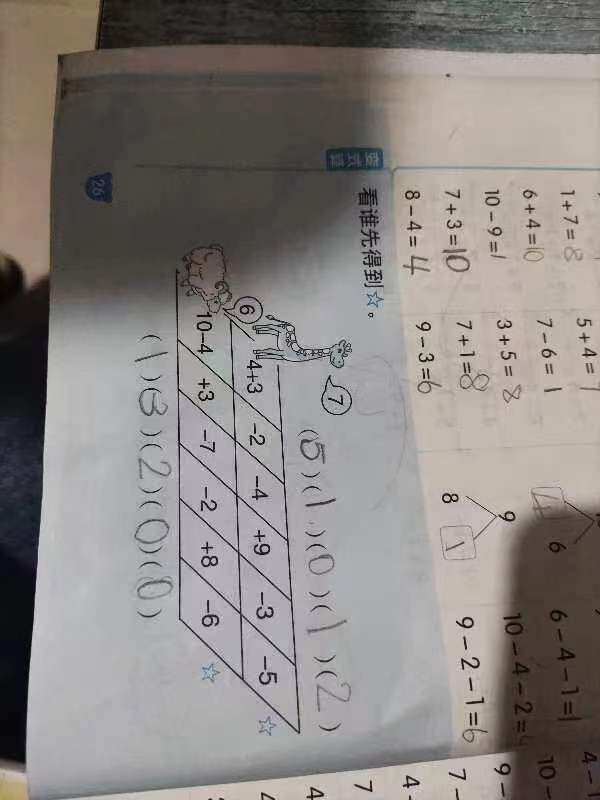 1+7=8 5+4=
6+4=10 7-6=1 4 6 6-4-1=1 10-
10-9=1 3+5=8 9 10-4-2= 9-
7+3=10 7+1=8 8 1 9-2-1=6 7-
8-4=4 9-3=6
看谁先得到☆。
7
(5)(1)(0)(1)(2)
4+3 -2 -4 +9 -3 -5 ☆
6
10-4 +3 -7 -2 +8 -6 ☆
(1)(3)(2)(0)(0)
26